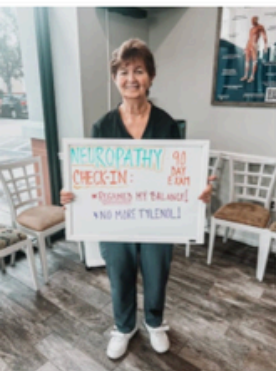 NEUROPATHY
CHECK-IN:
90
DAY
EXAM
* REGAINED MY BALANCE!
* NO MORE TYLENOL!